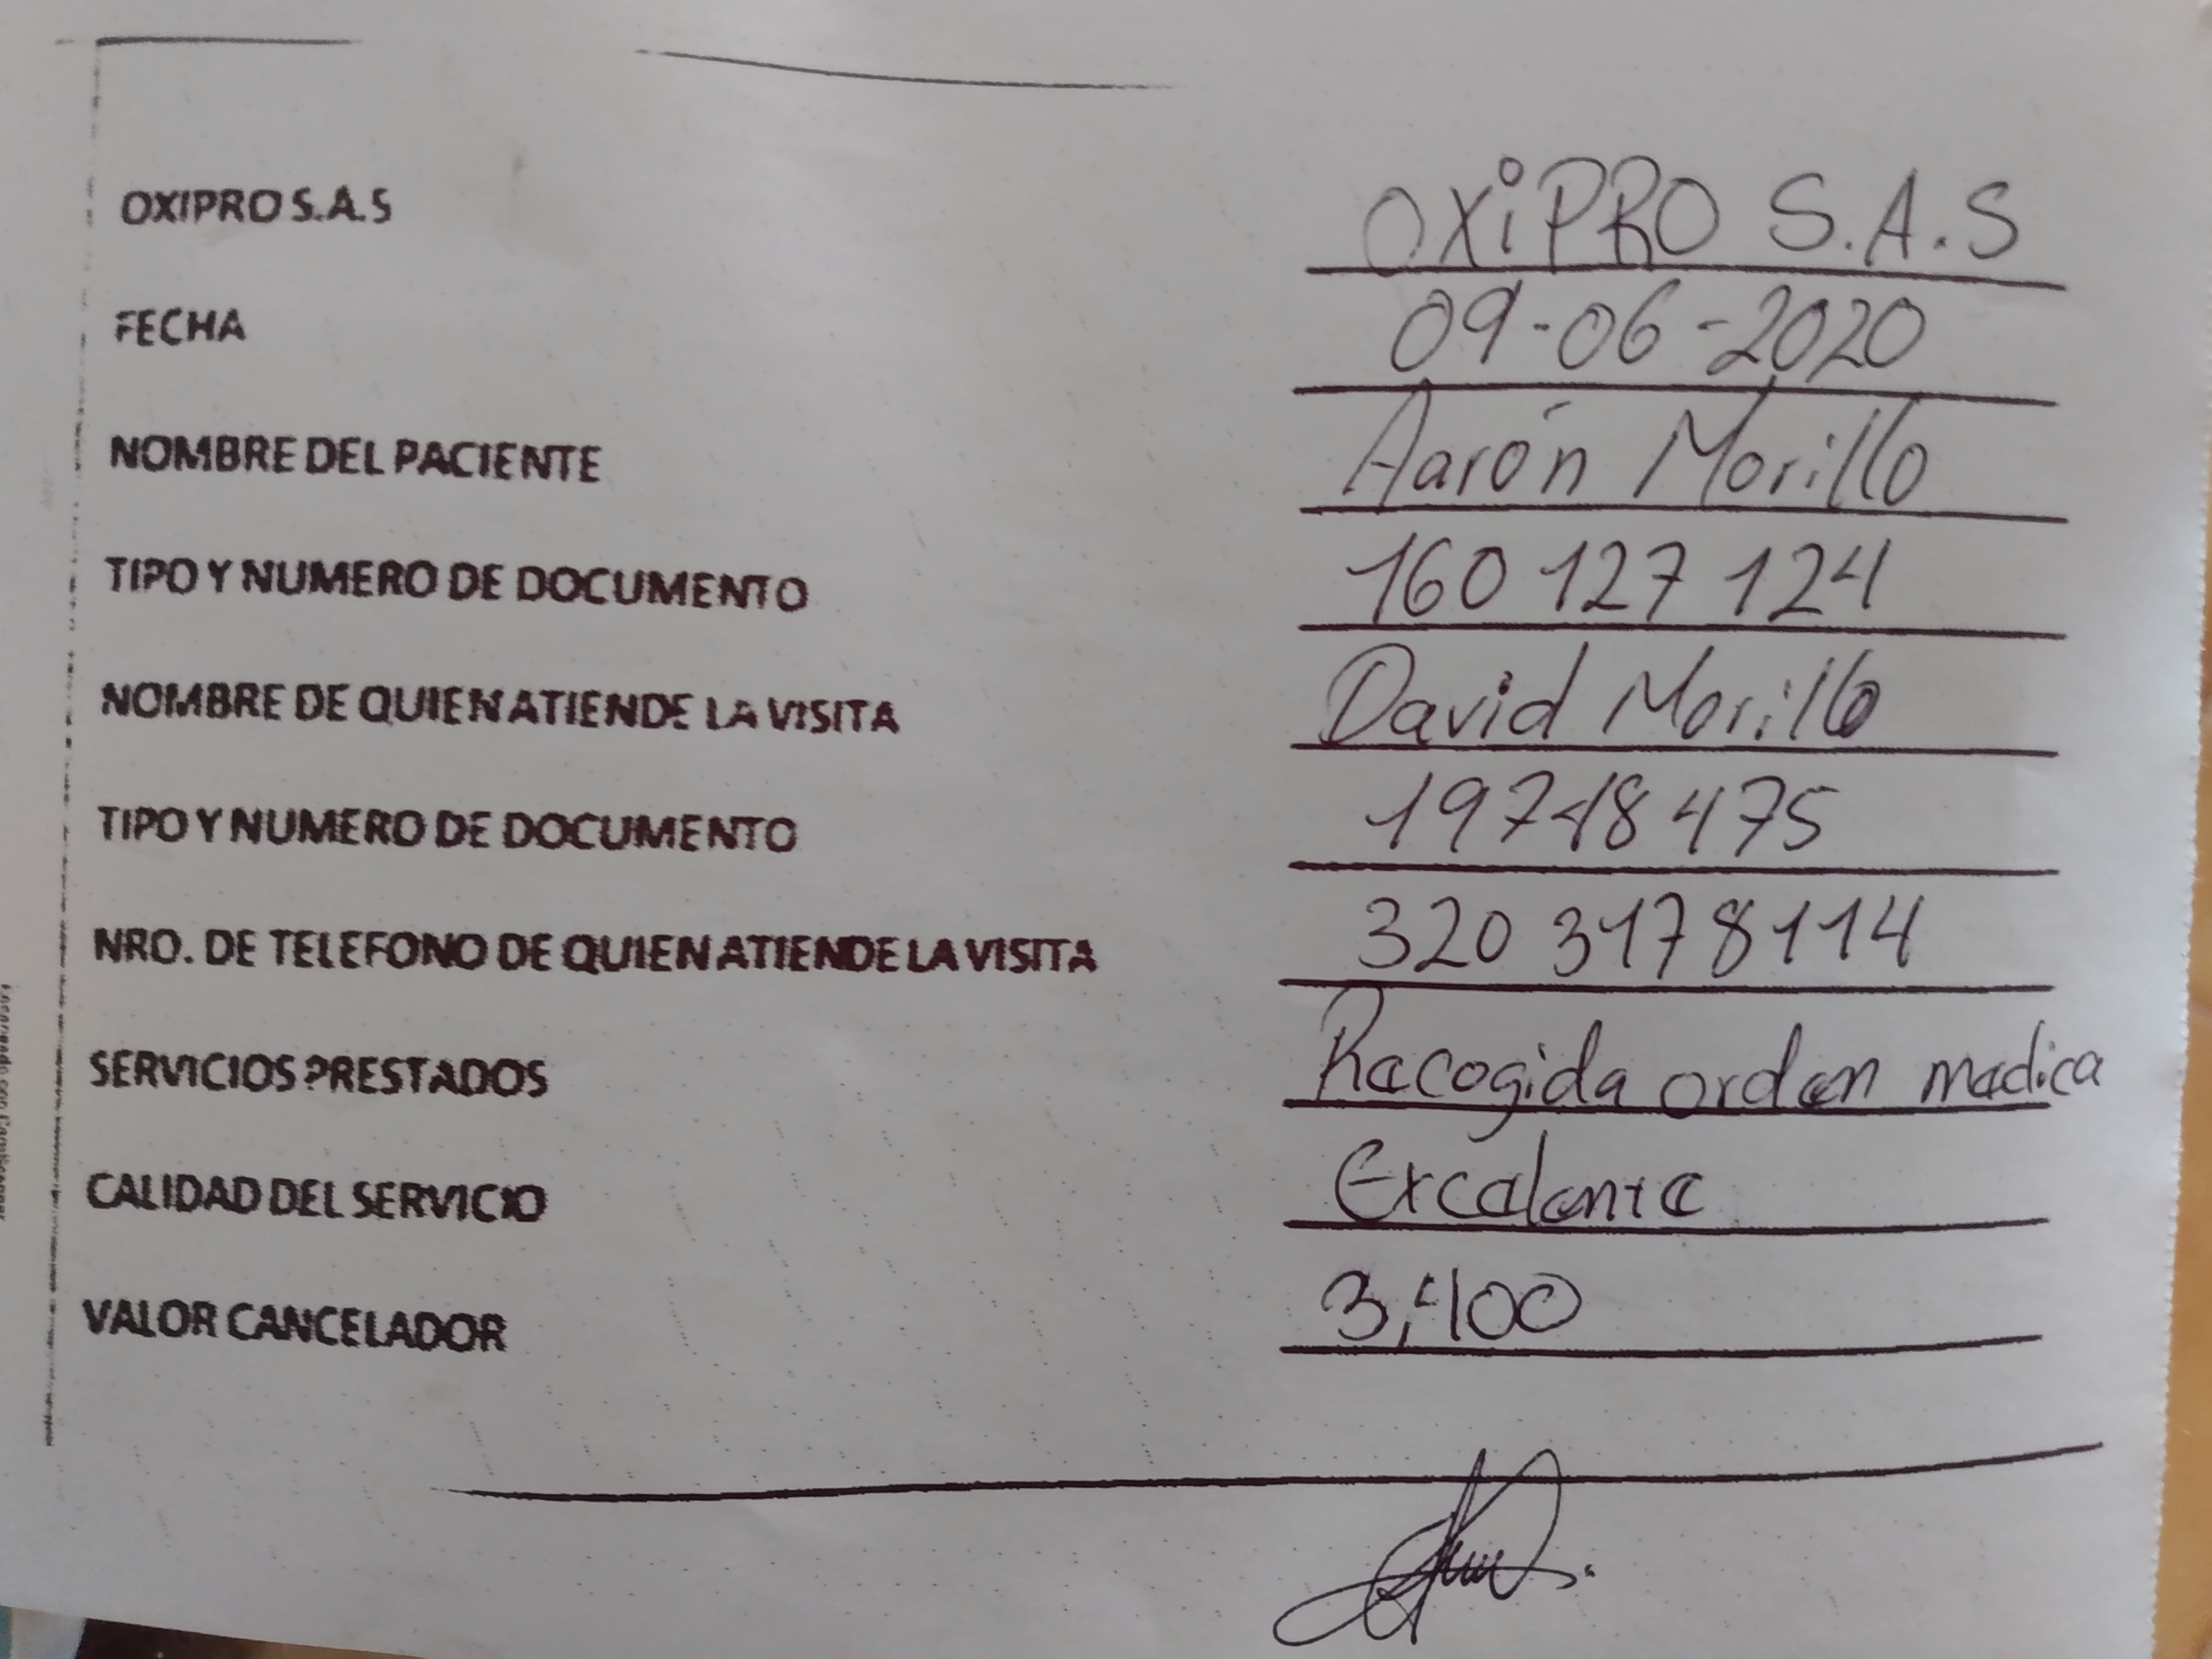 OXIPRO S.A.S OXiPRO S.A.S
FECHA 09-06-2020
NOMBRE DEL PACIENTE Aarón Morillo
TIPO Y NUMERO DE DOCUMENTO 160 127 124
NOMBRE DE QUIEN ATIENDE LA VISITA David Morillo
TIPO Y NUMERO DE DOCUMENTO 19718475
NRO. DE TELEFONO DE QUIEN ATIENDE LA VISITA 320 3178114
SERVICIOS PRESTADOS Recogida orden medica
CALIDAD DEL SERVICIO Excelente
VALOR CANCELADOR 3,400